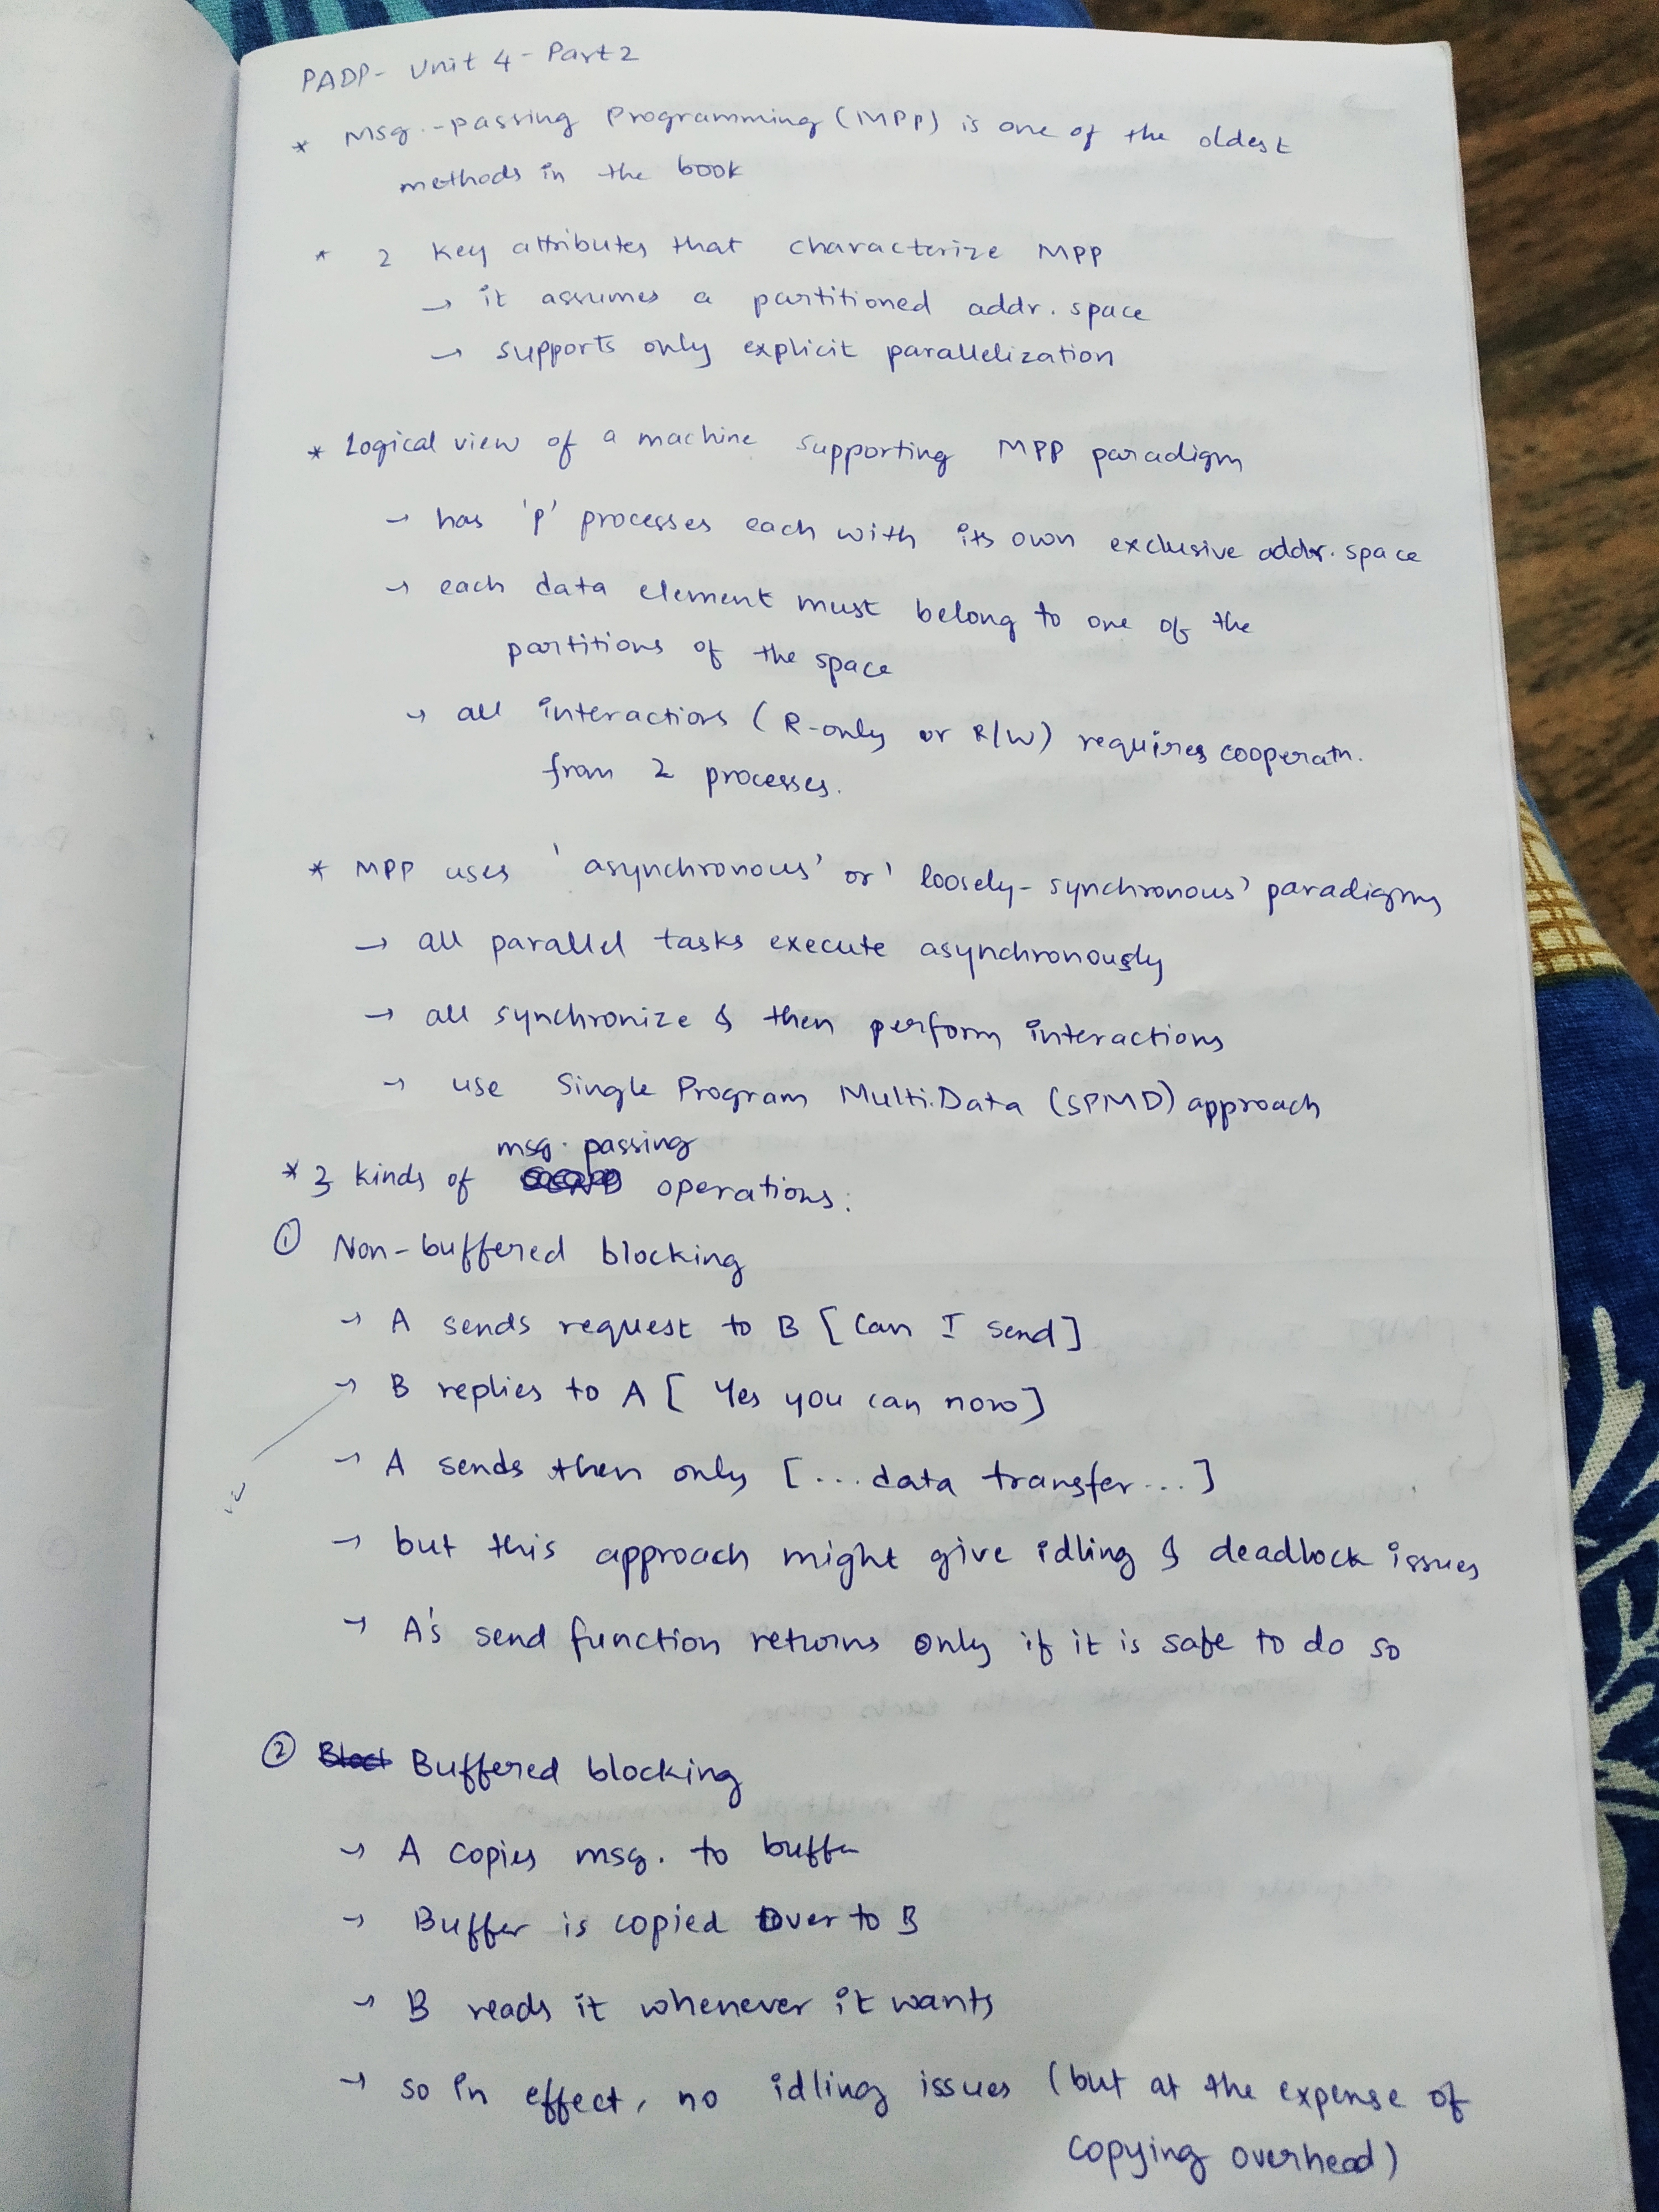 PADP- Unit 4 - Part 2
* Msg.-passing Programming (MPP) is one of the oldest
methods in the book
* 2 key attributes that characterize MPP
→ it assumes a partitioned addr. space
→ supports only explicit parallelization
* Logical view of a machine supporting MPP paradigm
→ has 'p' processes each with its own exclusive addr. space
→ each data element must belong to one of the
partitions of the space
→ all interactions (R-only or R/W) requires cooperatn.
from 2 processes.
* MPP uses 'asynchronous' or 'loosely-synchronous' paradigms
→ all parallel tasks execute asynchronously
→ all synchronize & then perform interactions
→ use Single Program Multi.Data (SPMD) approach
msg. passing
* 3 kinds of operations:
① Non-buffered blocking
→ A sends request to B [Can I send]
→ B replies to A [Yes you can now]
→ A sends then only [...data transfer...]
→ but this approach might give idling & deadlock issues
→ A's send function returns only if it is safe to do so
② Buffered blocking
→ A copies msg. to buffer
→ Buffer is copied over to B
→ B reads it whenever it wants
→ so in effect, no idling issues (but at the expense of
copying overhead)